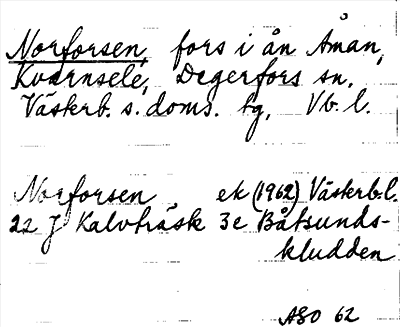 Norforsen, fors i ån Åman,
Kvarnsele, Degerfors sn.
Västerb. s. doms. tg, Vb. l.
Norforsen ek (1962) Västerb.l.
22 J Kalvträsk 3e Båtsunds-
kludden
ASO 62